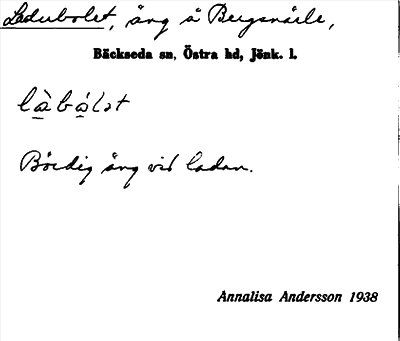 Ladubolet, äng å Bergsnärle,
Bäckseda sn, Östra hd, Jönk. l.
là̱bá̱lət
Bördig äng vid ladan.
Annalisa Andersson 1938